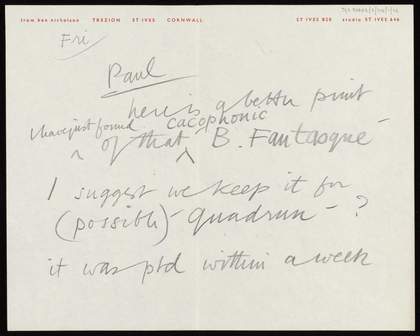 from ben nicholson TREZION ST IVES CORNWALL ST IVES 828 studio ST IVES 646
Fri
Paul
here is a better print
I have just found cacophonic
of that B. Fantasque -
I suggest we keep it for
(possible) - quadrun - ?
it was ptd within a week